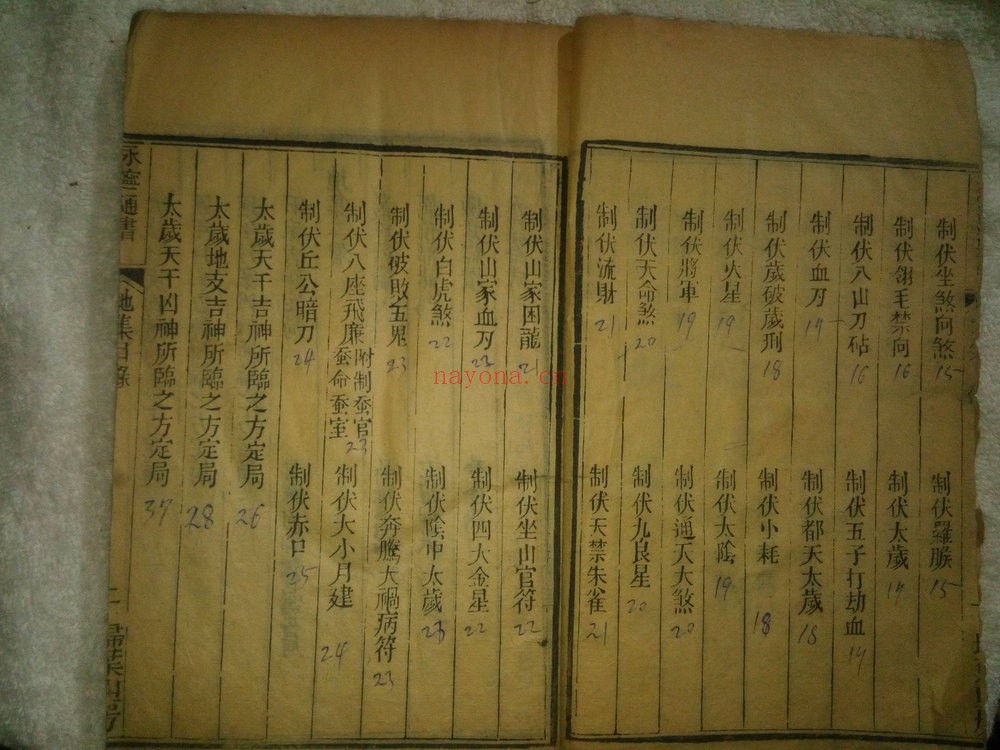 制伏坐煞向煞 15 制伏羅睺 15
制伏翎毛禁向 16 制伏太歲 17
制伏八山刀砧 16 制伏五子打劫血 17
制伏血刃 17 制伏都天太歲 18
制伏歲破歲刑 18 制伏小耗 18
制伏火星 19 制伏太陰 19
制伏將軍 19 制伏通天大煞 20
制伏天命煞 20 制伏九良星 20
制伏流財 21 制伏天禁朱雀 21
制伏山家困龍 制伏坐山官符 22
制伏山家血刃 22 制伏四大金星 22
制伏白虎煞 22 制伏陰中太歲 23
制伏破敗五鬼 23 制伏奔騰大禍病符 23
制伏八座飛廉 附制蚕官蚕命蚕室 23 制伏大小月建 24
制伏丘公暗刀 24 制伏赤口 25
太歲天干吉神所臨之方定局 26
太歲地支吉神所臨之方定局 28
太歲天干凶神所臨之方定局 37
永寧通書 地集目錄 二 掃葉山房
nayona.cn